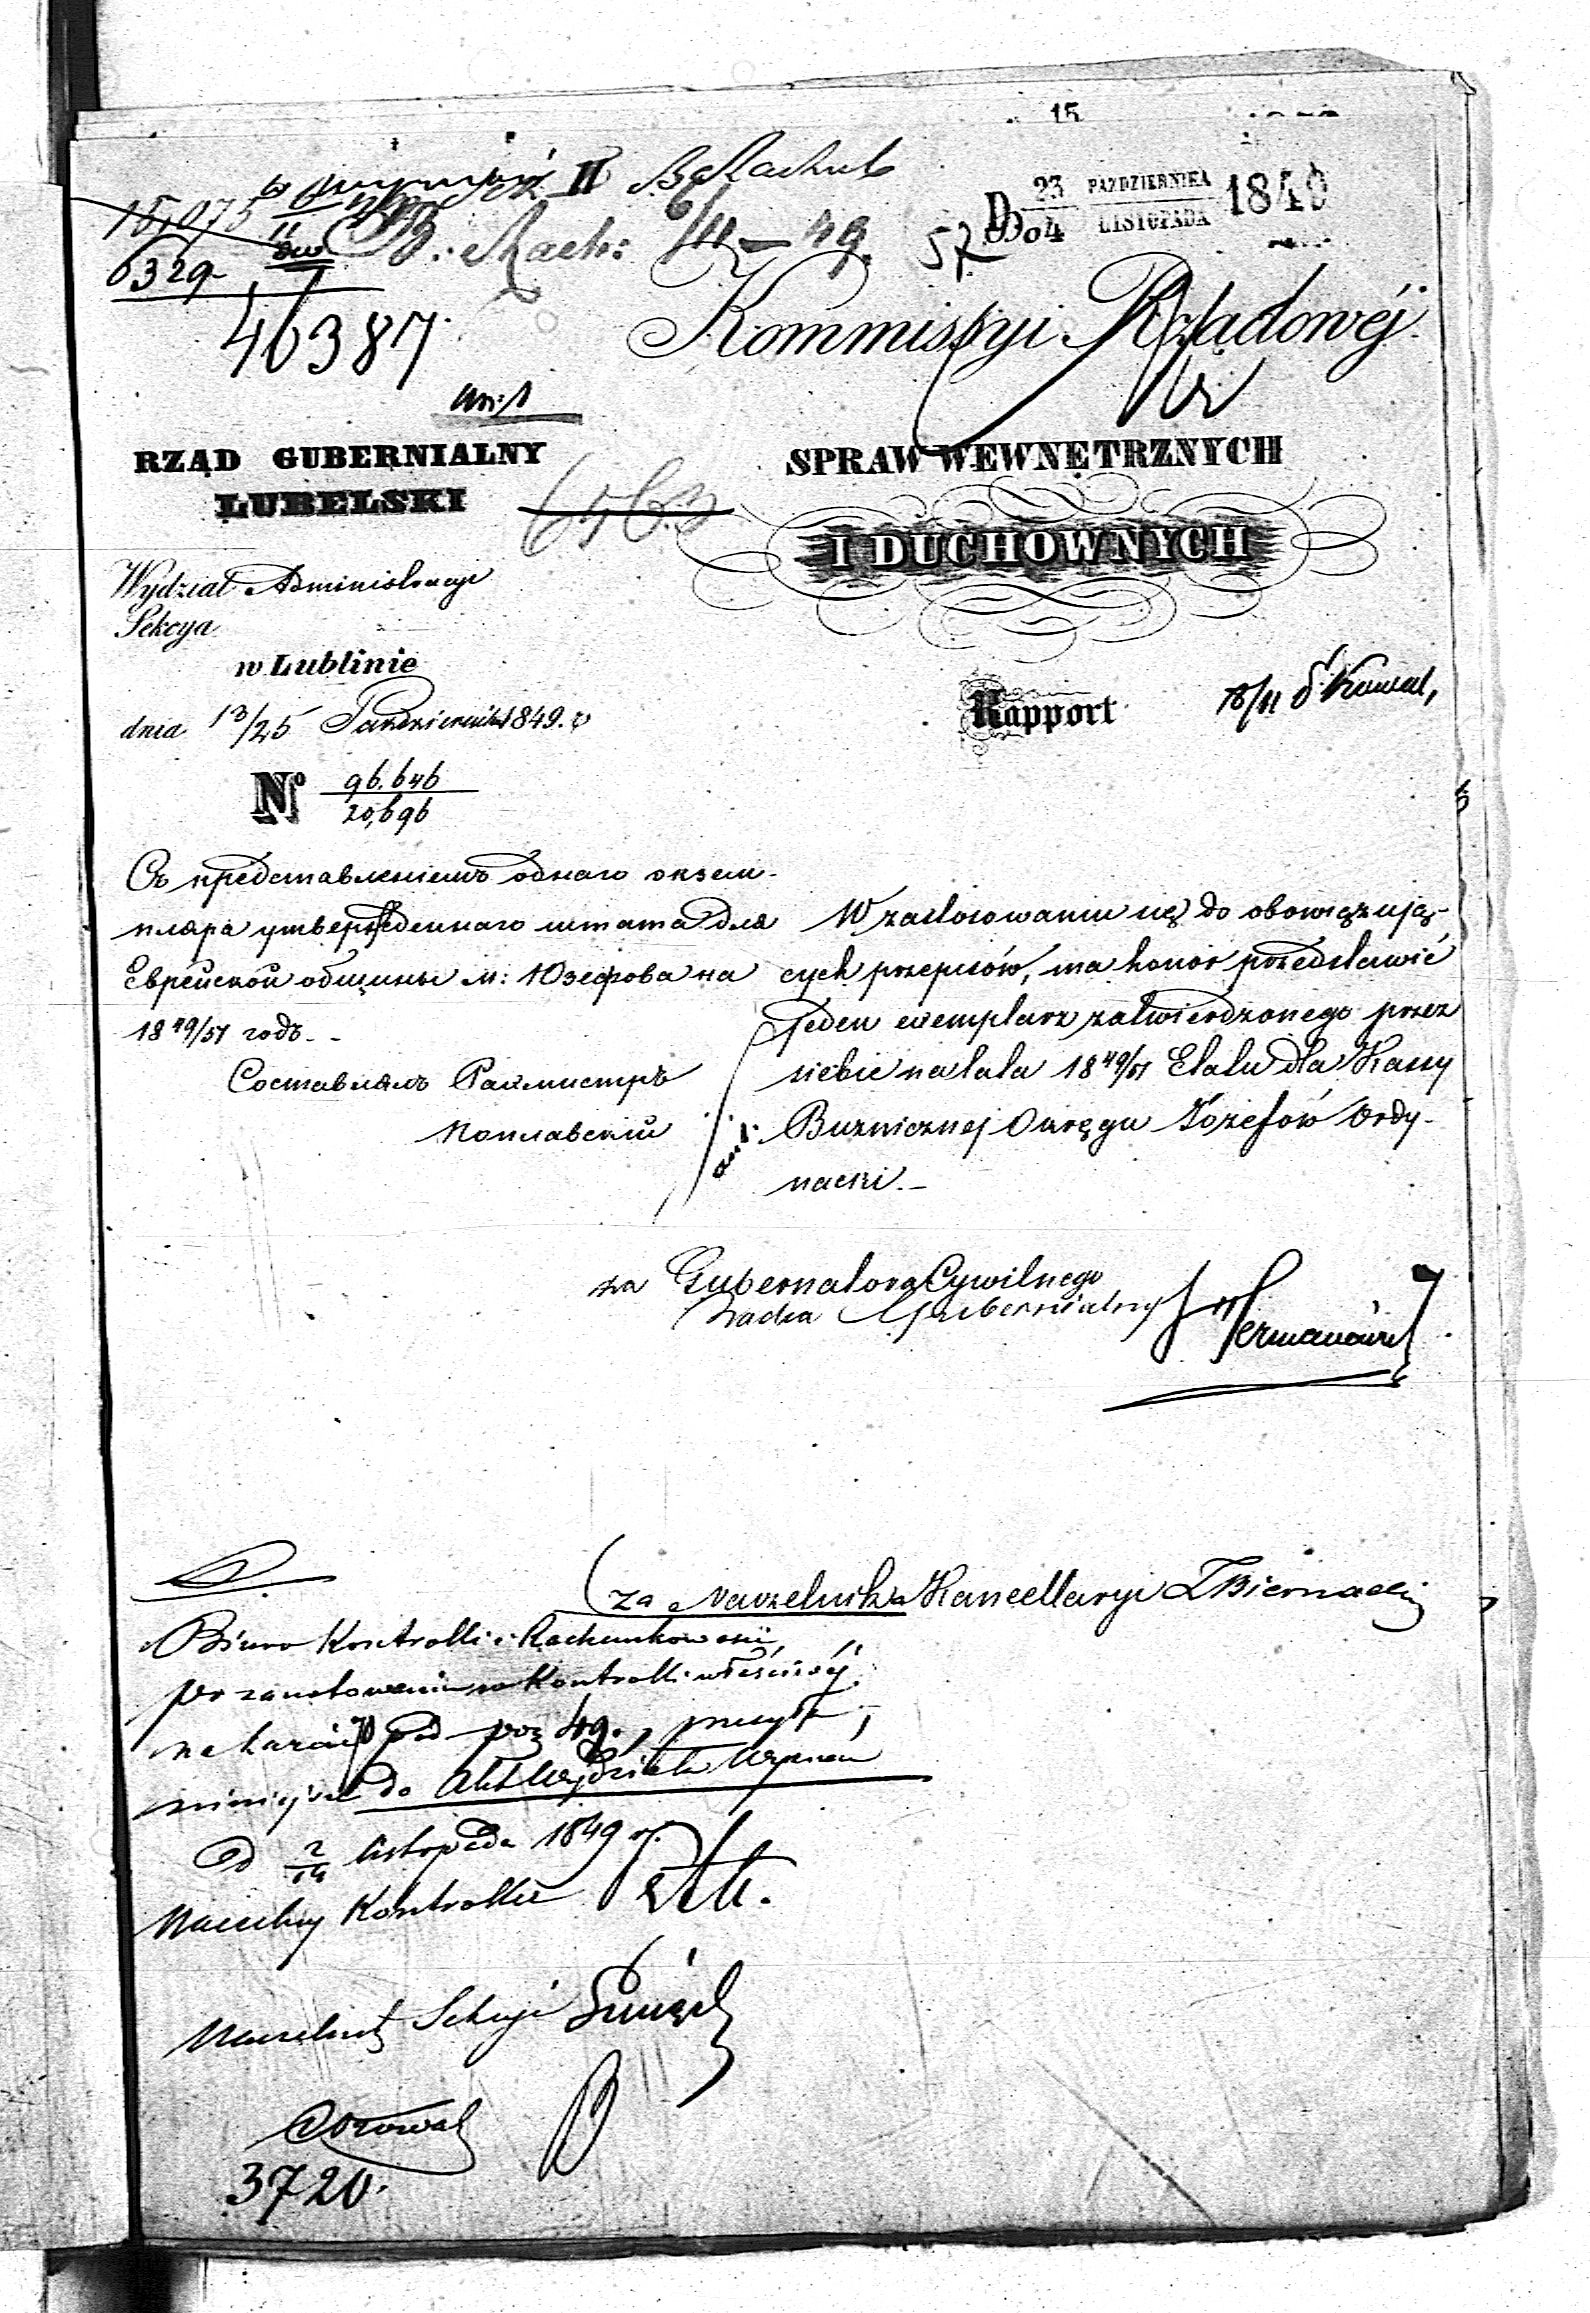 15
II B Rachub
15,075
6329
B. Rach: 49. 57
D 23 PAZDZIERNIKA 1849
04 LISTOPADA
46387
Kommissyi Rządowéj
RZĄD GUBERNIALNY
LUBELSKI
SPRAW WEWNĘTRZNYCH
I DUCHOWNYCH
Wydział Administracyi
Sekcya
w Lublinie
dnia 13/25 Pazdziernika 1849. r
Rapport
No 96.646
20,696
Съ представленіемъ одного экзем-
пляра утвержденнаго штата для
Еврейской общины м: Юзефова на
18 49/51 годъ. -
Составилъ
W zastosowaniu się do obowiązują-
cych przepisów, ma honor przedstawić
jeden exemplarz zatwierdzonego przez
siebie na lata 18 49/51 Etatu dla Kassy
Buzniczněj Okręgu Józefów Ordy-
nacki. -
za Gubernatora Cywilnego
Radca Gubernialny
za Naczelnika Kancellaryi Biernacki
Biuro Kontrolli i Rachunkowości
po zanotowaniu w Kontrolli właściwéj
na karcie pod poz 49.
do Akt Wydziału Wyznań
D 2/14 listopada 1849 r.
Naczelny Kontroller
Naczelnik Sekcyi
3720.